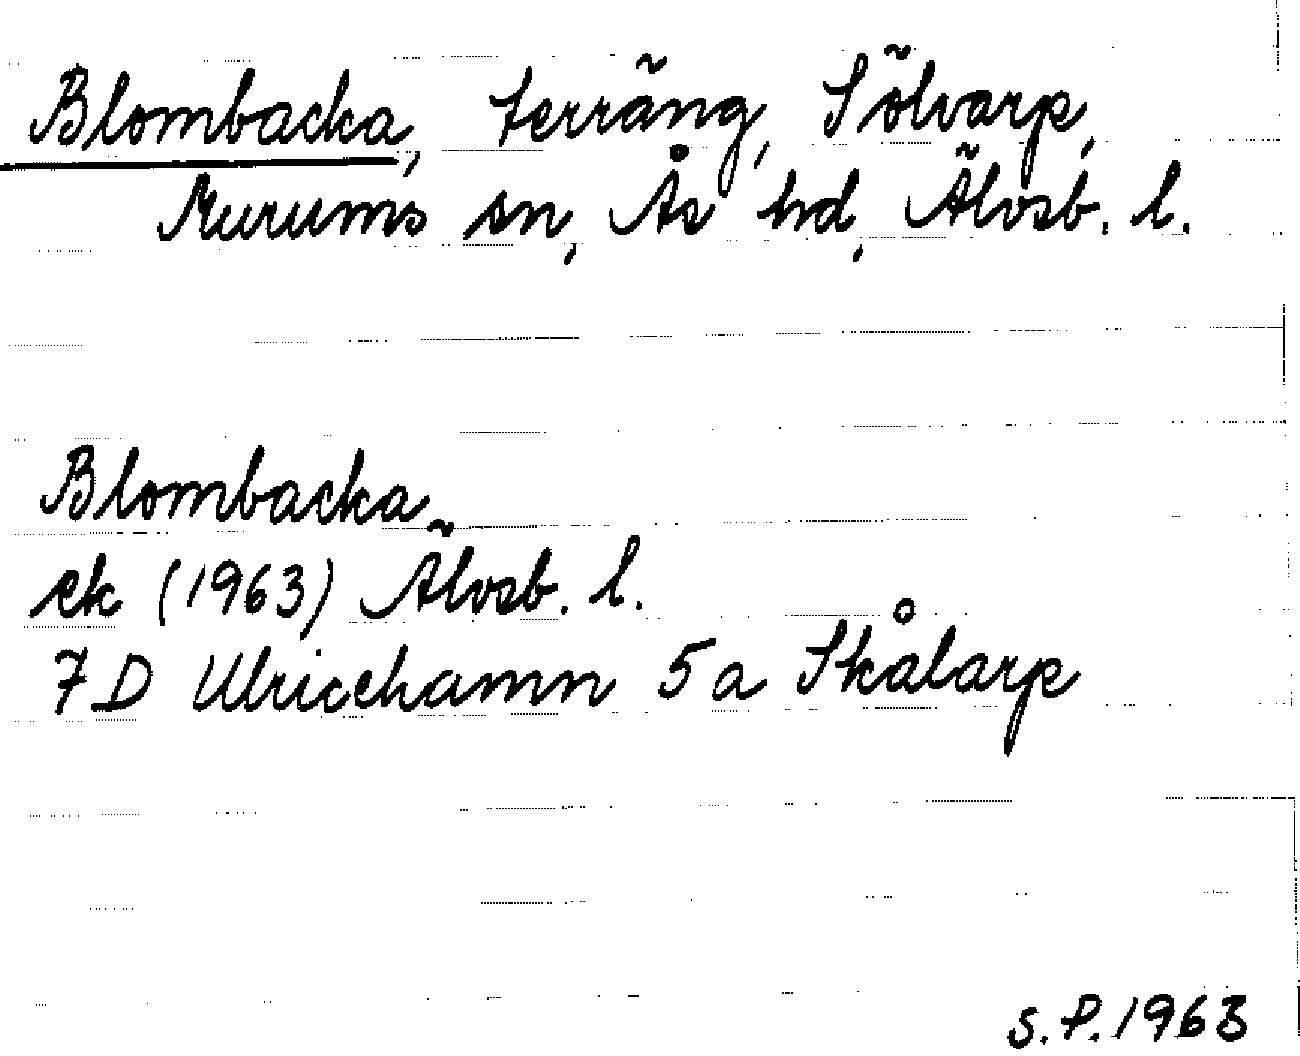 Blombacka, terräng, Sölvarp,
Murums sn, Ås hd, Älvsb. l.
Blombacka
ek (1963) Älvsb. l.
7 D Ulricehamn 5 a Skålarp
S. P. 1963